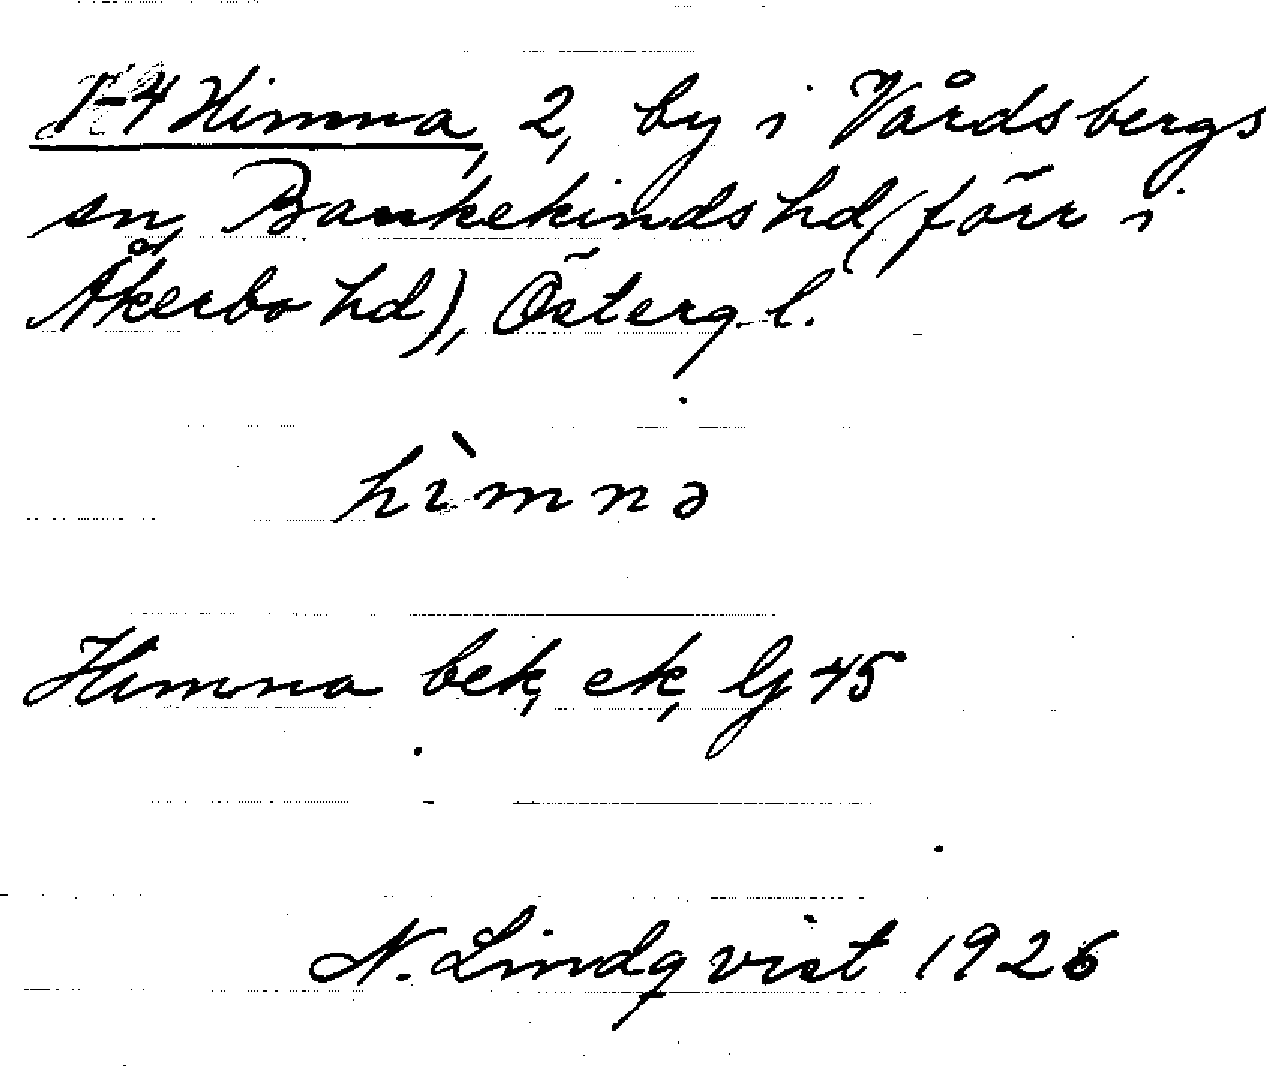 1-4 Himna, 2, by i Vårdsbergs
sn, Bankekinds hd (förr i
Åkerbo hd), Österg. l.
hìmnə
Himna bek, ek, Gj 45
N. Lindqvist 1926